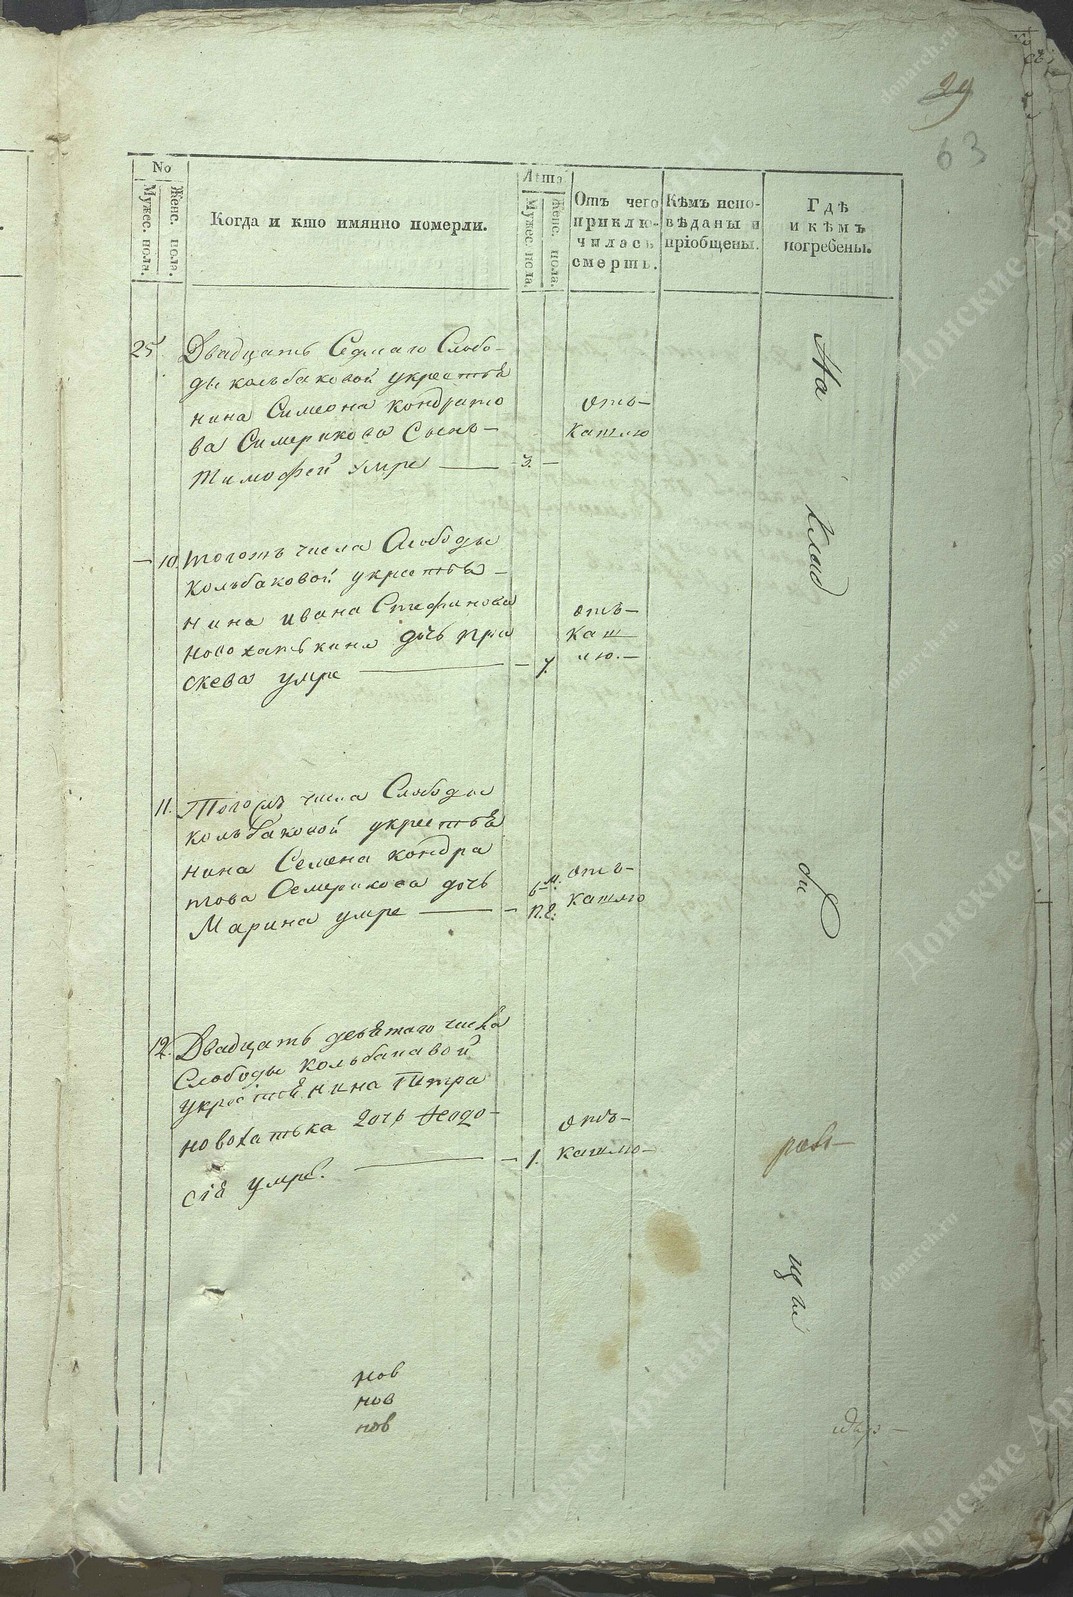 29
63
No
Мужес. пола.
Женс. пола.
Когда и кто имянно померли.
Лѣта
Мужес. пола.
Женс. пола.
Отъ чего
приклю-
чилась
смерть.
Кѣмъ испо-
вѣданы и
пріобщены.
Гдѣ
и кѣмъ
погребены.
25
Двадцать Седмаго Слобо-
ды кольбаковой укрестьѣ
нина Симеона кондрато
ва Симерикова Сынъ-
Тимофей умре
3.
отъ-
кашлю
На
клад
би
щи
10
тогожъ числа Слободы
Кольбаковой укрестьѣ-
нина ивана Стефанова
новохатькина дочь пра
скева умре
7.
отъ-
каш
лю.-
11.
Тогожъ числа Слободы
кольбаковой укрестьѣ
нина Семена кондра
това Семерикова дочь
Марина умре
6 м.
н.е.
отъ-
кашлю
12.
Двадцать девѣтаго числа
Слободы кольбакавой
укрестьѣнина Петра
новохатька дочь Ѳеодо-
сіѣ умре.
1.
отъ-
кашлю-
нов
нов
нов